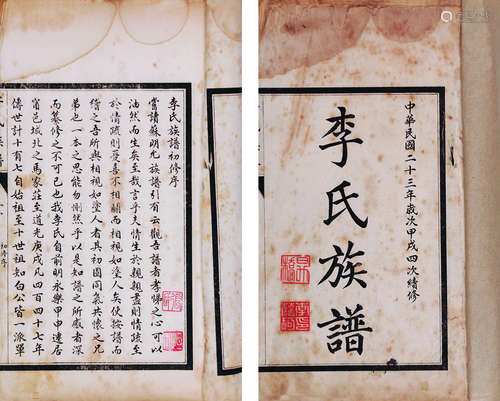 中華民國二十三年歲次甲戌四次續修
李氏族譜
李氏族譜初修序
嘗讀蘇明允族譜引有云觀吾譜者孝悌之心可以
油然而生矣至哉言乎夫情生於親親盡則情疏至
於情疏則憂喜不相關而相視如塗人矣使按譜而
稽之吾所與相視如塗人者其初固同氣共懷之兄
弟也一本之思能勿惻然乎以是知譜之所載者深
而纂修之不可已也我李氏自前明永樂甲申遷居
甯邑城北之馬家莊至道光庚戌凡四百四十七年
傳世計十有七自始祖至十世祖知白公皆一派單
初修序